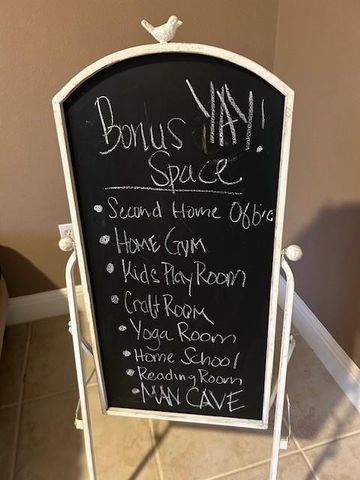 Bonus YAY!
Space
• Second Home Office
• HOME GYM
• Kids Play Room
• Craft Room
• Yoga Room
• Home School
• Reading Room
• MAN CAVE